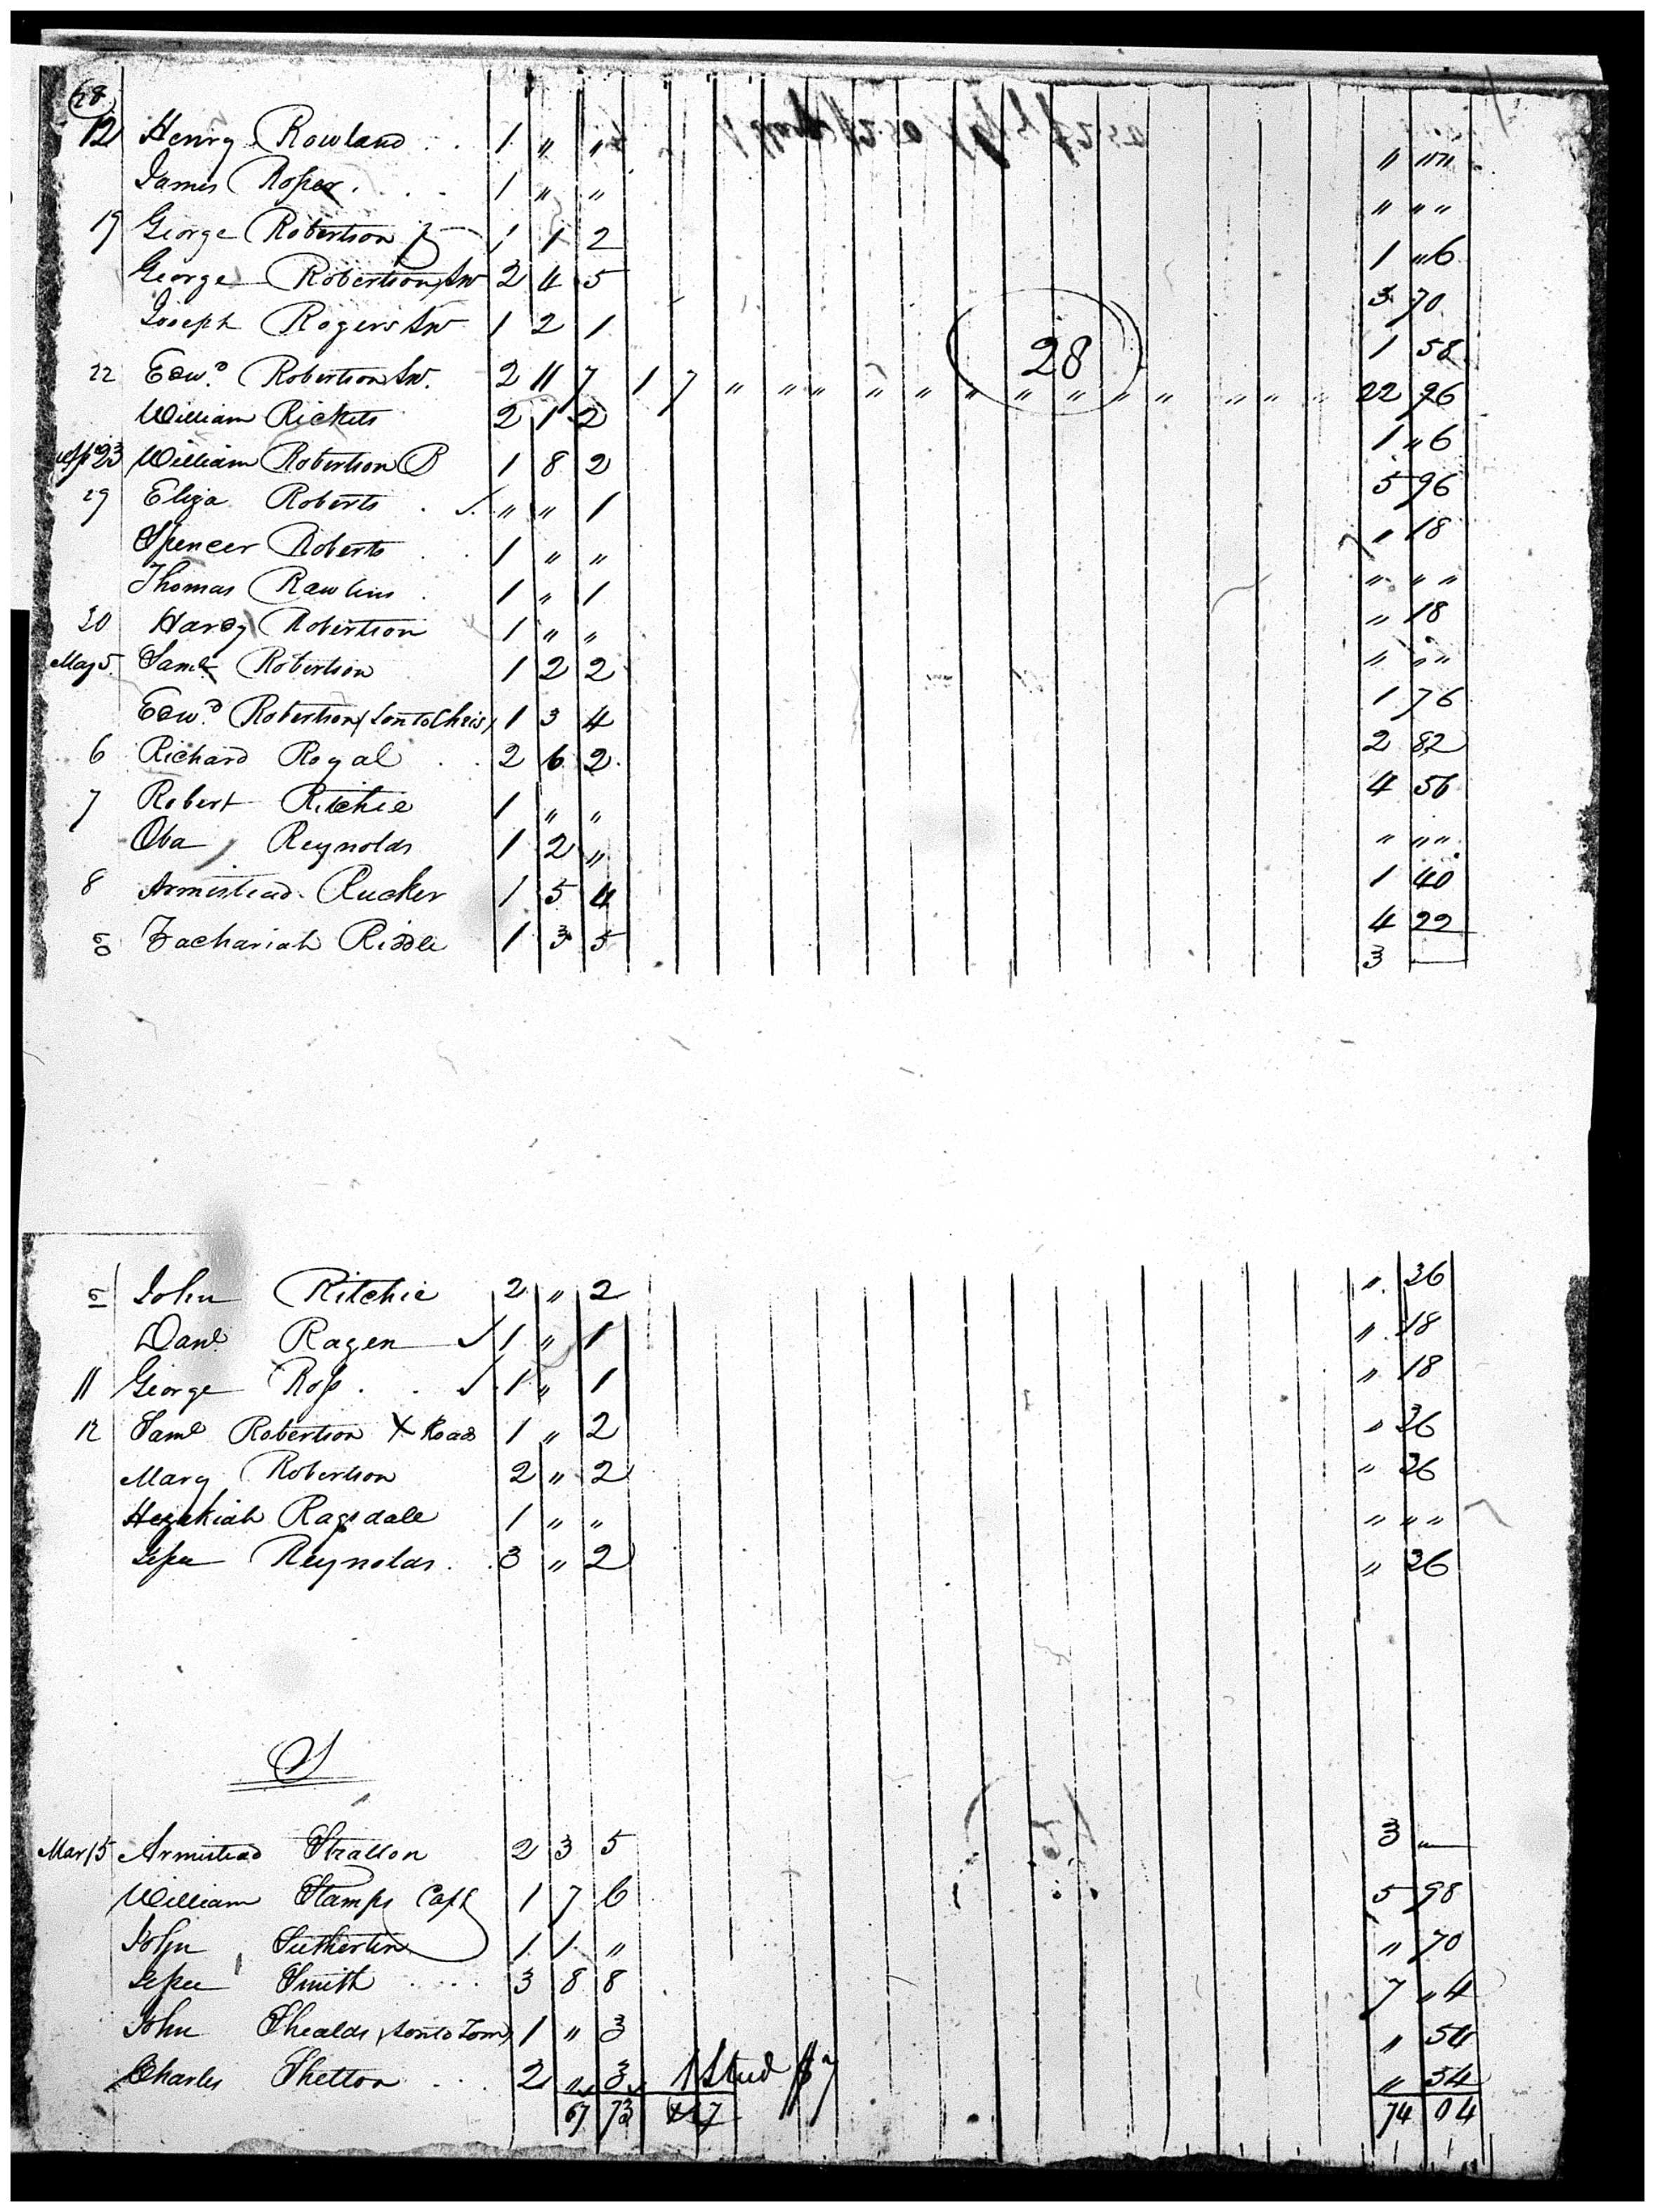 28
12 Henry Rowland . . 1 " " " " "
James Roper . . . 1 " " " " "
19 George Robertson Jr 1 1 2 1 " 6
George Robertson Snr 2 4 5 3 70
Joseph Rogers Snr 1 2 1 1 58
28
22 Edwd. Robertson Snr. 2 11 7 1 7 " " " " " " " " " " " " " 22 96
William Rickets 2 1 2 1 " 6
Apl 23 William Robertson B 1 8 2 5 96
29 Eliza Roberts . " " 1 " 18
Spencer Roberts . . 1 " " " " "
Thomas Rawlins . 1 " 1 " 18
30 Hardy Robertson 1 " " " " "
May 5. Saml. Robertson 1 2 2 1 76
Edwd. Robertson (Son to Chris) 1 3 4 2 82
6 Richard Royal . . 2 6 2 4 56
7 Robert Ritchie 1 " " " " "
Oba Reynolds 1 2 " 1 40
8 Armistead Rucker 1 5 4 4 22
9 Zachariah Riddle 1 3 5 3 —
9 John Ritchie 2 " 2 " 36
Danl. Ragen 1 " 1 " 18
11 George Ross . . 1 " 1 " 18
12 Saml Robertson X Road 1 " 2 " 36
Mary Robertson 2 " 2 " 36
Hezekiah Ragsdale 1 " " " " "
Jesse Reynolds . . 3 " 2 " 36
S
Mar 15 Armistead Stratton 2 3 5 3 "
William Stamps Capt 1 7 6 5 98
John Sutherlin 1 1 " " 70
Jesse Smith . . . . 3 8 8 7 " 4
John Shealds (Son to Tom) 1 " 3 " 54
Charles Shelton . . . 2 " 3 1 Stud $7 " 54
67 73 7 74 04